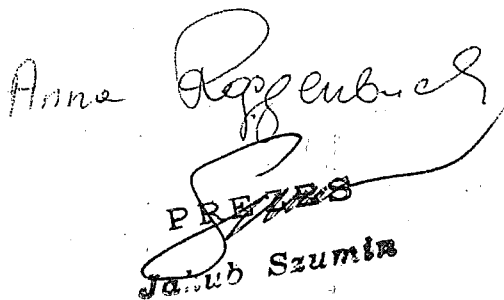 Anna Roggenbuck
PREZES
Jakub Szumin